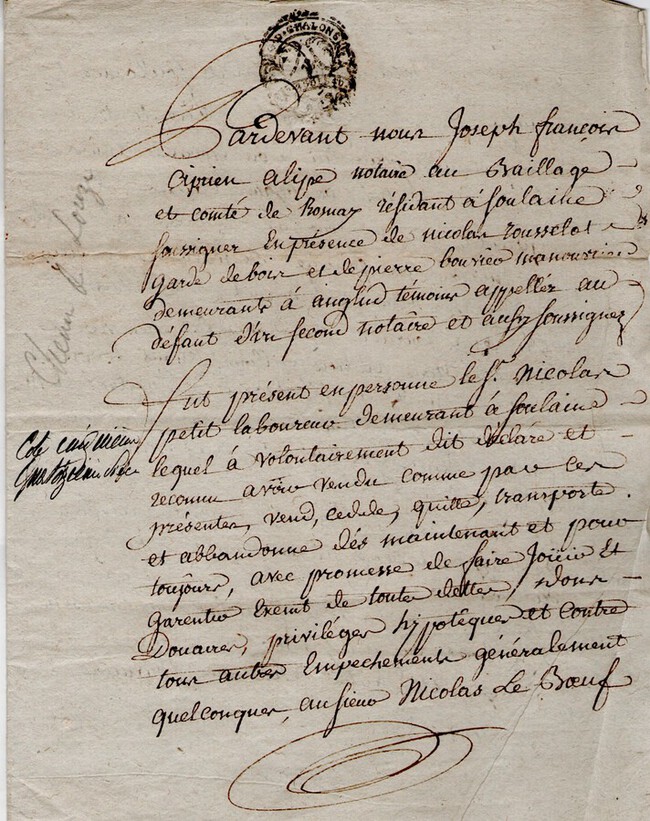 Pardevant nous Joseph françois
Ciprien alipe notaire au Baillage
et comté de Rosnay résidant à soulaine
soussigner en présence de nicolas rousselot
garde debois et de pierre bouvier manouvrier
demeurants à anglud témoins appellez au
défaut d'un second notaire et aussy soussignez
fut présent en personne le Sr. Nicolas
petit laboureur demeurant à soulaine
lequel à volontairement dit déclaré et
reconnu avoir vendu comme par ces
présentes, vend, cedde, quitte, transporte
et abbandonne dés maintenant et pour
toujours, avec promesse de faire Joüir Et
garentir Exempt de toutes dettes, dons
Douaires, priviléges hypotêques et contre
tous autres Empechements généralement
quelconques, au sieur Nicolas Le Bœuf
Cote